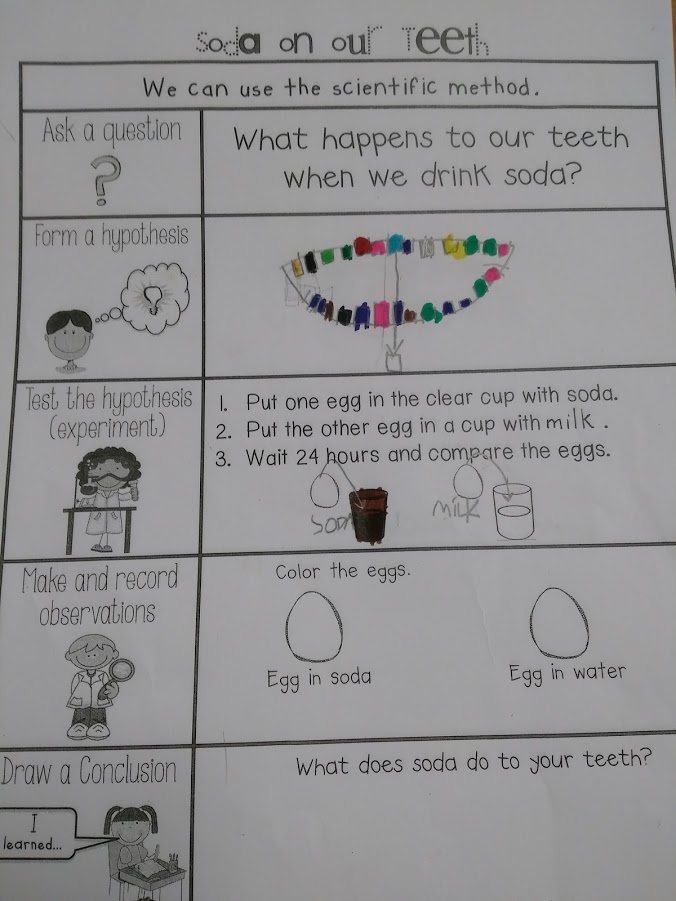 Soda on our Teeth
We can use the scientific method.
Ask a question
?
What happens to our teeth
when we drink soda?
Form a hypothesis
Test the hypothesis
(experiment)
1. Put one egg in the clear cup with soda.
2. Put the other egg in a cup with milk.
3. Wait 24 hours and compare the eggs.
SODA
MilK
Make and record
observations
Color the eggs.
Egg in soda
Egg in water
Draw a Conclusion
I
learned...
What does soda do to your teeth?